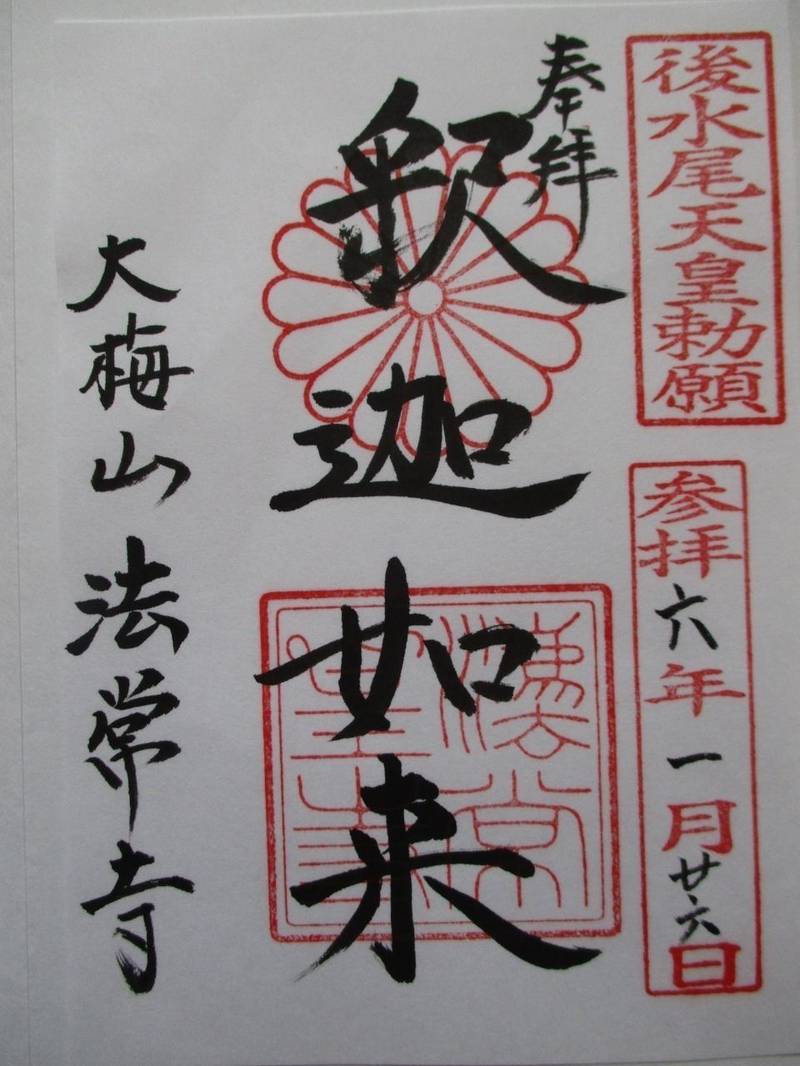 後水尾天皇勅願
参拝六年一月廿六日
奉拝
釈迦如来
大梅山法常寺